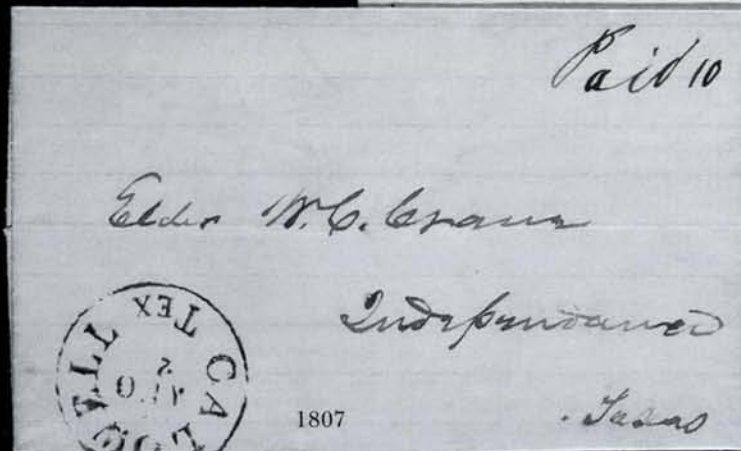 Paid 10
Elder W. C. Crane
Independance
Texas
TEX
1807